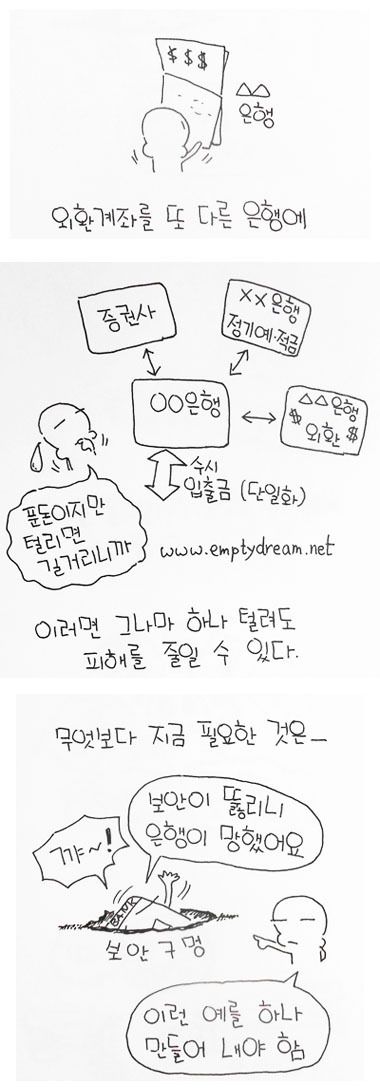 $ $ $
△△
은행
외환계좌를 또 다른 은행에
증권사
××은행
정기예·적금
○○은행
△△은행
$ 외환 $
수시
입출금 (단일화)
푼돈이지만
털리면
길거리니까
www.emptydream.net
이러면 그나마 하나 털려도
피해를 줄일 수 있다.
무엇보다 지금 필요한 것은_
보안이 뚫리니
은행이 망했어요
꺄~!
BANK
보안 구멍
이런 예를 하나
만들어 내야 함